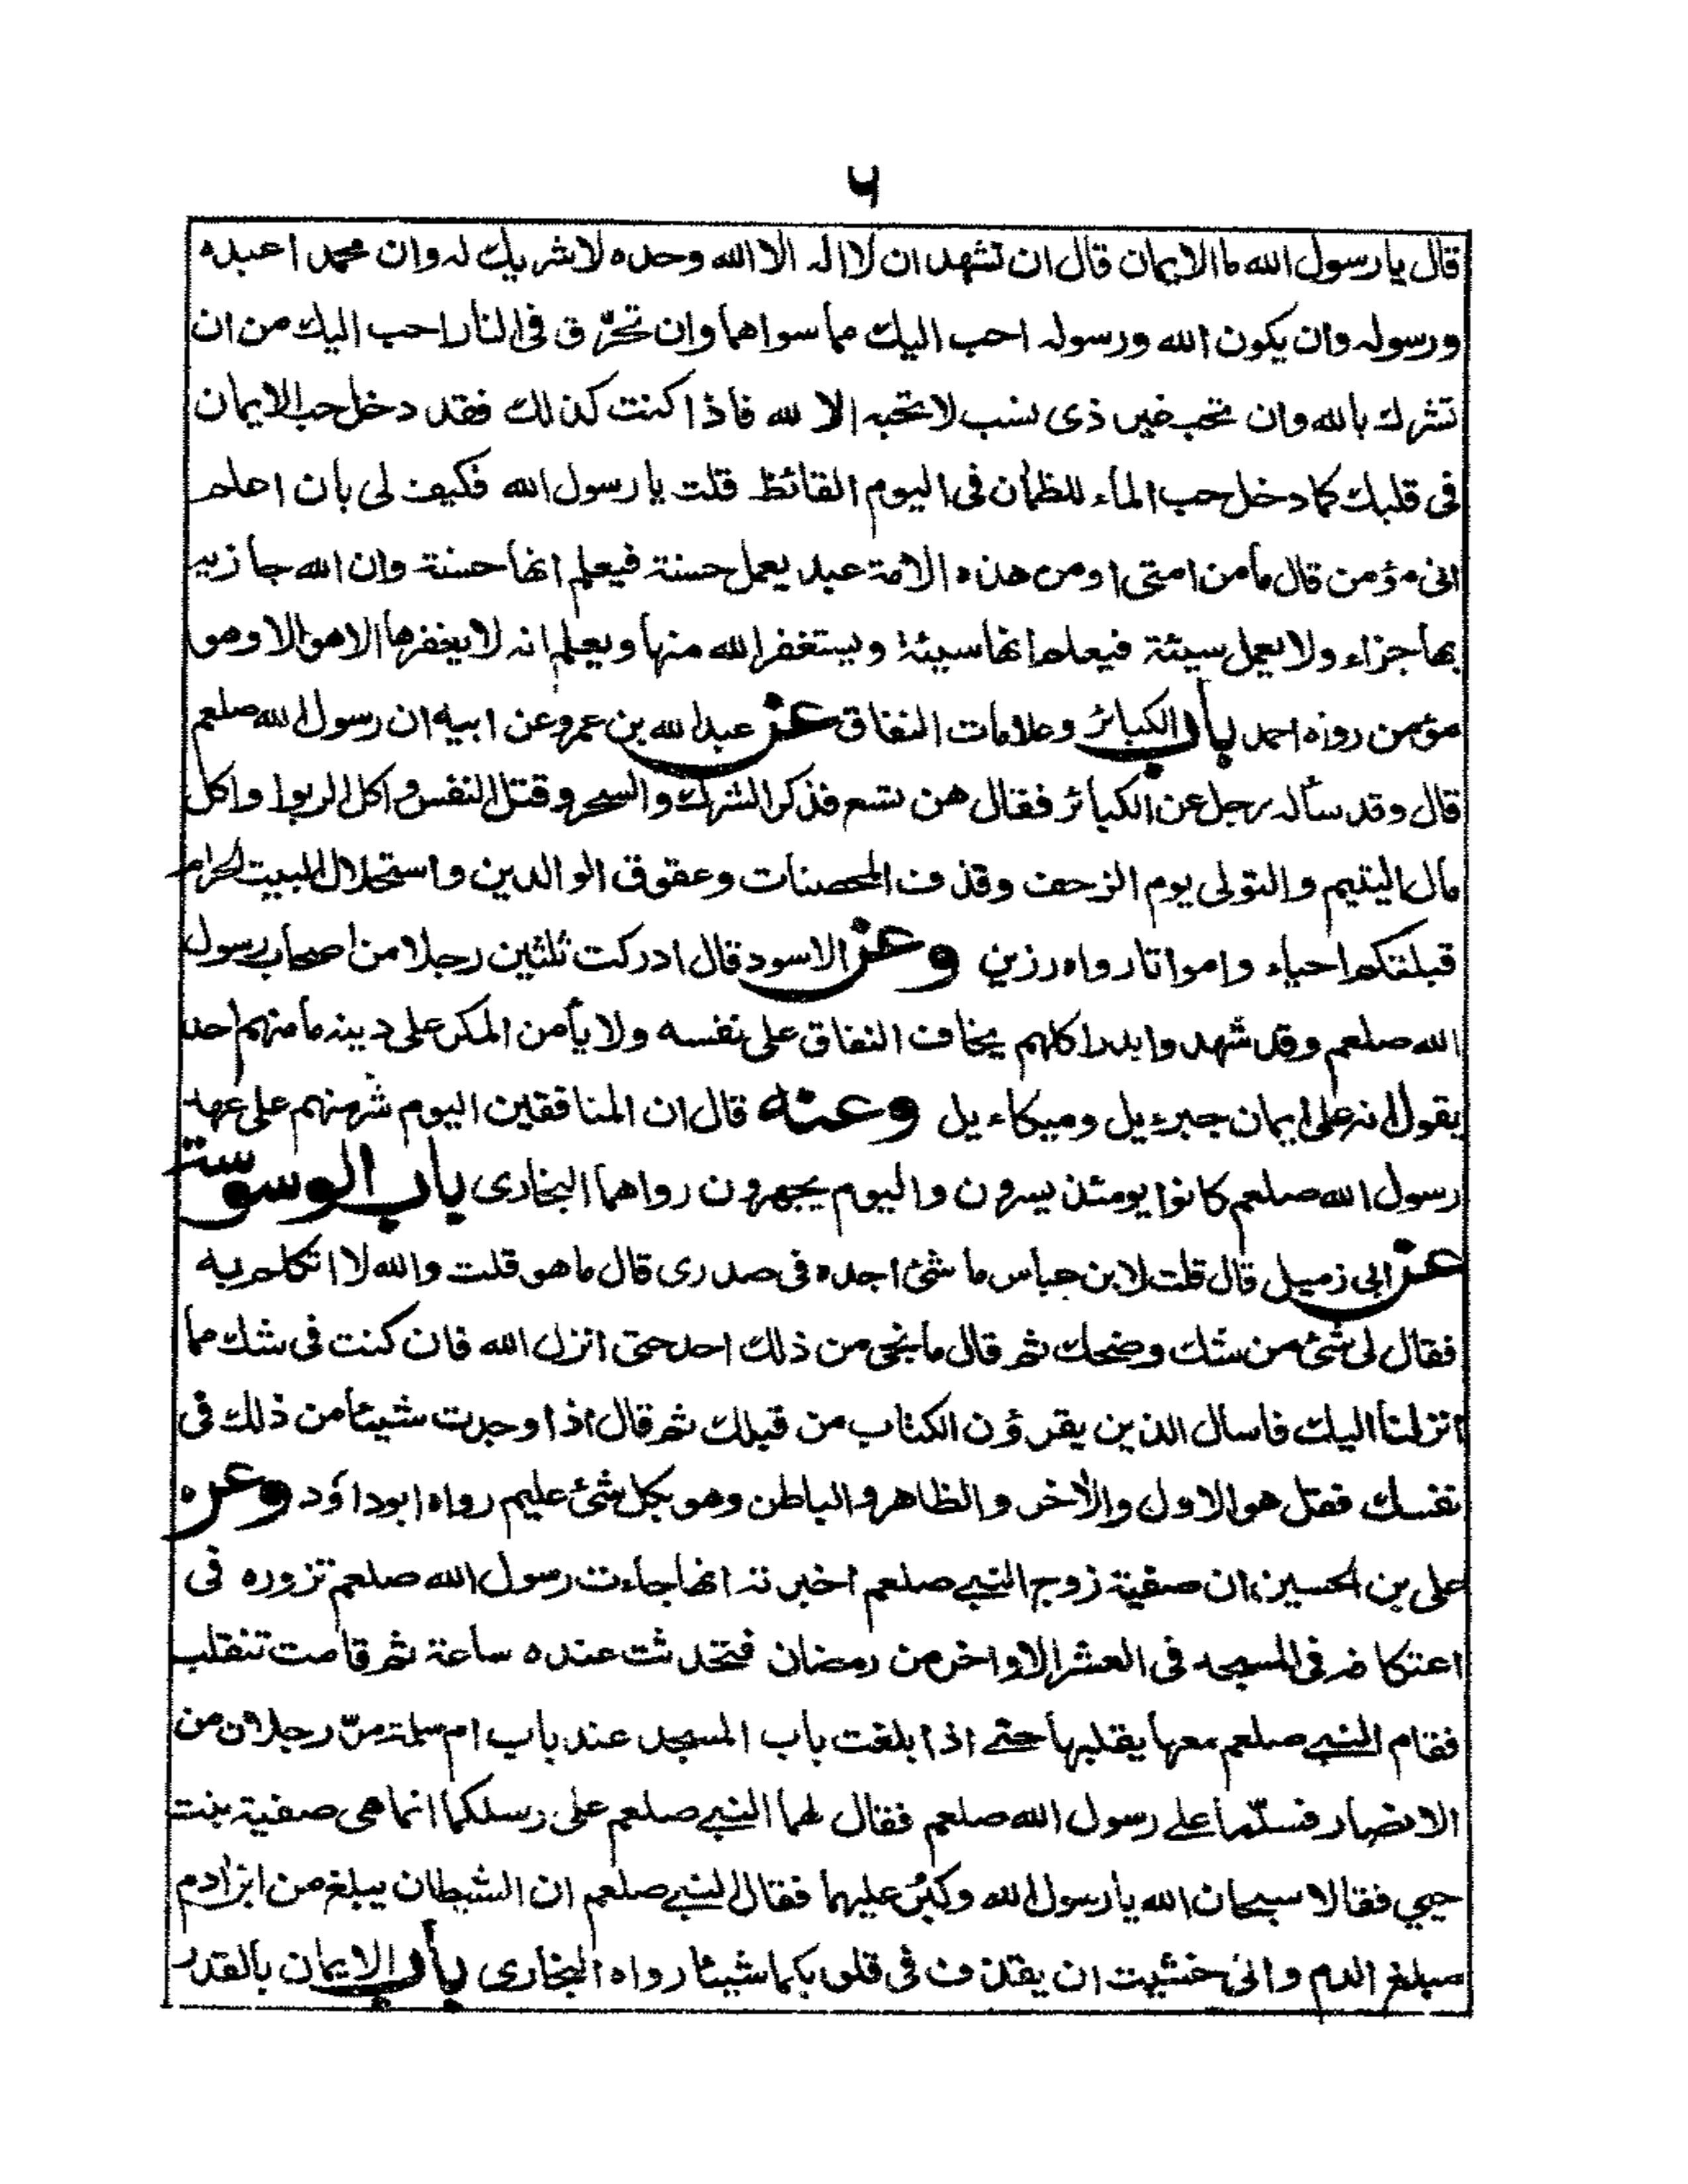 ۶
قال يا رسول الله ما الايمان قال ان تشهد ان لا اله الا الله وحده لا شريك له وان محمدا عبده
ورسوله وان يكون الله ورسوله احب اليك مما سواهما وان تحرّق فى النار احب اليك من ان
تشرك بالله وان تحب غير ذى نسب لا تحبه الا لله فاذا كنت كذلك فقد دخل حب الايمان
فى قلبك كما دخل حب الماء للظمأن فى اليوم القائظ قلت يا رسول الله فكيف لى بان اعلم
انى مؤمن قال ما من امتى او من هذه الامة عبد يعمل حسنة فيعلم انها حسنة وان الله جازيه
بها جزاء ولا يعمل سيئة فيعلم انها سيئة ويستغفر الله منها ويعلم انه لا يغفرها الا هو الا وهو
مؤمن رواه احمد باب الكبائر وعلامات النفاق عن عبدالله بن عمرو عن ابيه ان رسول الله صلعم
قال وقد سأله رجل عن الكبائر فقال هن تسع فذكر الشرك والسحر وقتل النفس واكل الربوا واكل
مال اليتيم والتولى يوم الزحف وقذف المحصنات وعقوق الوالدين واستحلال البيت الحرام
قبلتكم احياء وامواتا رواه رزين وعن الاسود قال ادركت ثلثين رجلا من اصحاب رسول
الله صلعم وقد شهدوا بدرا كلهم يخاف النفاق على نفسه ولا يأمن المكر على دينه ما منهم احد
يقول انه على ايمان جبرءيل وميكاءيل وعنه قال ان المنافقين اليوم شر منهم على عهد
رسول الله صلعم كانوا يومئذ يسرون واليوم يجهرون رواهما البخارى باب الوسوسة
عن ابى زميل قال قلت لابن عباس ما شئ اجده فى صدرى قال ما هو قلت والله لا اتكلم به
فقال لى شئ من شك وضحك ثم قال ما نجى من ذلك احد حتى انزل الله فان كنت فى شك مما
انزلنا اليك فاسال الذين يقرؤن الكتاب من قبلك ثم قال اذا وجدت شيئا من ذلك فى
نفسك فقل هو الاول والأخر والظاهر والباطن وهو بكل شئ عليم رواه ابوداؤد وعن
على بن الحسين ان صفية زوج النبى صلعم اخبرته انها جاءت رسول الله صلعم تزوره فى
اعتكافه فى المسجد فى العشر الاواخر من رمضان فتحدثت عنده ساعة ثم قامت تنقلب
فقام النبى صلعم معها يقلبها حتى اذا بلغت باب المسجد عند باب ام سلمة مرّ رجلان من
الانصار فسلّما على رسول الله صلعم فقال لهما النبى صلعم على رسلكما انما هى صفية بنت
حيي فقالا سبحان الله يا رسول الله وكبُر عليهما فقال النبى صلعم ان الشيطان يبلغ من ابن ادم
مبلغ الدم وانى خشيت ان يقذف فى قلوبكما شيئا رواه البخارى باب الايمان بالقدر